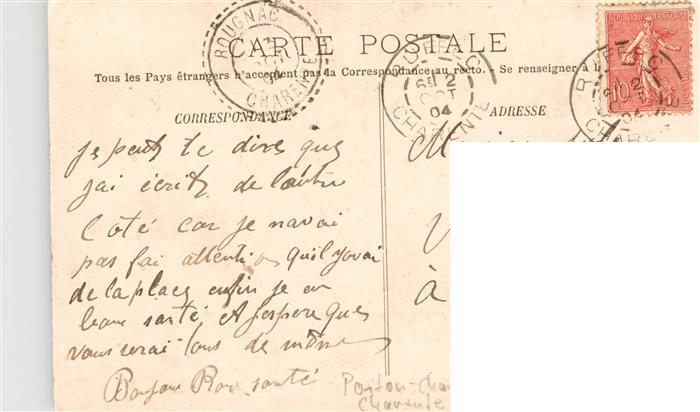 CARTE POSTALE
Tous les Pays étrangers n'acceptent pas la Correspondance au recto. - Se renseigner à l
CORRESPONDANCE
ADRESSE
ROUGNAC
CHARENTE
RUFFEC
2
OCT
04
CHARENTE
REPUBLIQUE FRANÇAISE
10
RUFFEC
2
04
je peut te dires que
j'ai écrit de l'autre
coté car je navai
pas fai attention quil y avai
de la place enfin je en
bonne santé et j'espere que
vous serai tous de même
Bonjour Bone santé
V
à
Poitou-Cha
Charente